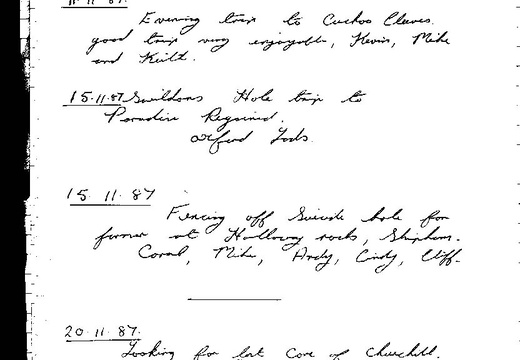 11.11.87.
Evening trip to Cuckoo Cleeves.
good trip very enjoyable, Kevin, Mike
and Keith.
15.11.87 Swildons Hole trip to
Paradise Regained.
Oxford Lads.
15. 11. 87
Fencing off Suicide hole for
farmer at Holloway rocks, Shipham.
Carol, Mike, Andy, Cindy, Cliff.
20.11.87.
Looking for lost Cave of Churchill.